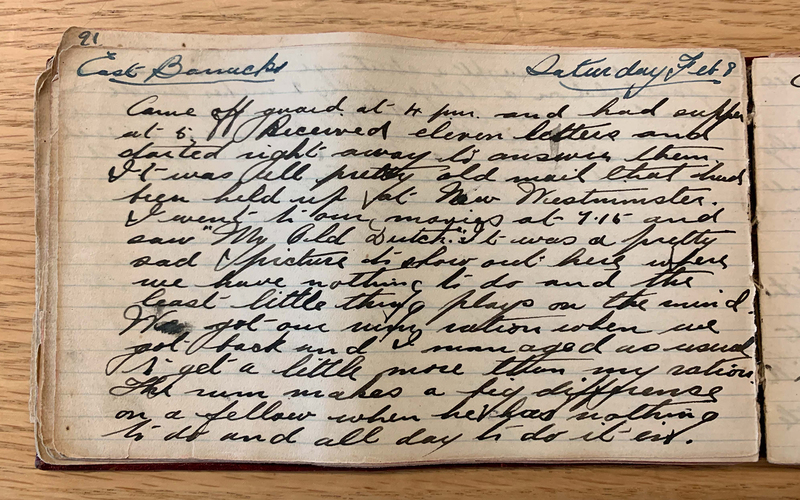 91
East Barracks Saturday Feb 8
Came off guard at 4 pm. and had supper
at 5. Received eleven letters and
started right away to answer them.
It was all pretty old mail that had
been held up at New Westminster.
I went to our movies at 7.15 and
saw "My Old Dutch." It was a pretty
sad picture to show out here where
we have nothing to do and the
least little thing plays on the mind.
We got our rum ration when we
got back and I managed as usual
to get a little more than my ration.
The rum makes a big difference
on a fellow when he has nothing
to do and all day to do it in.